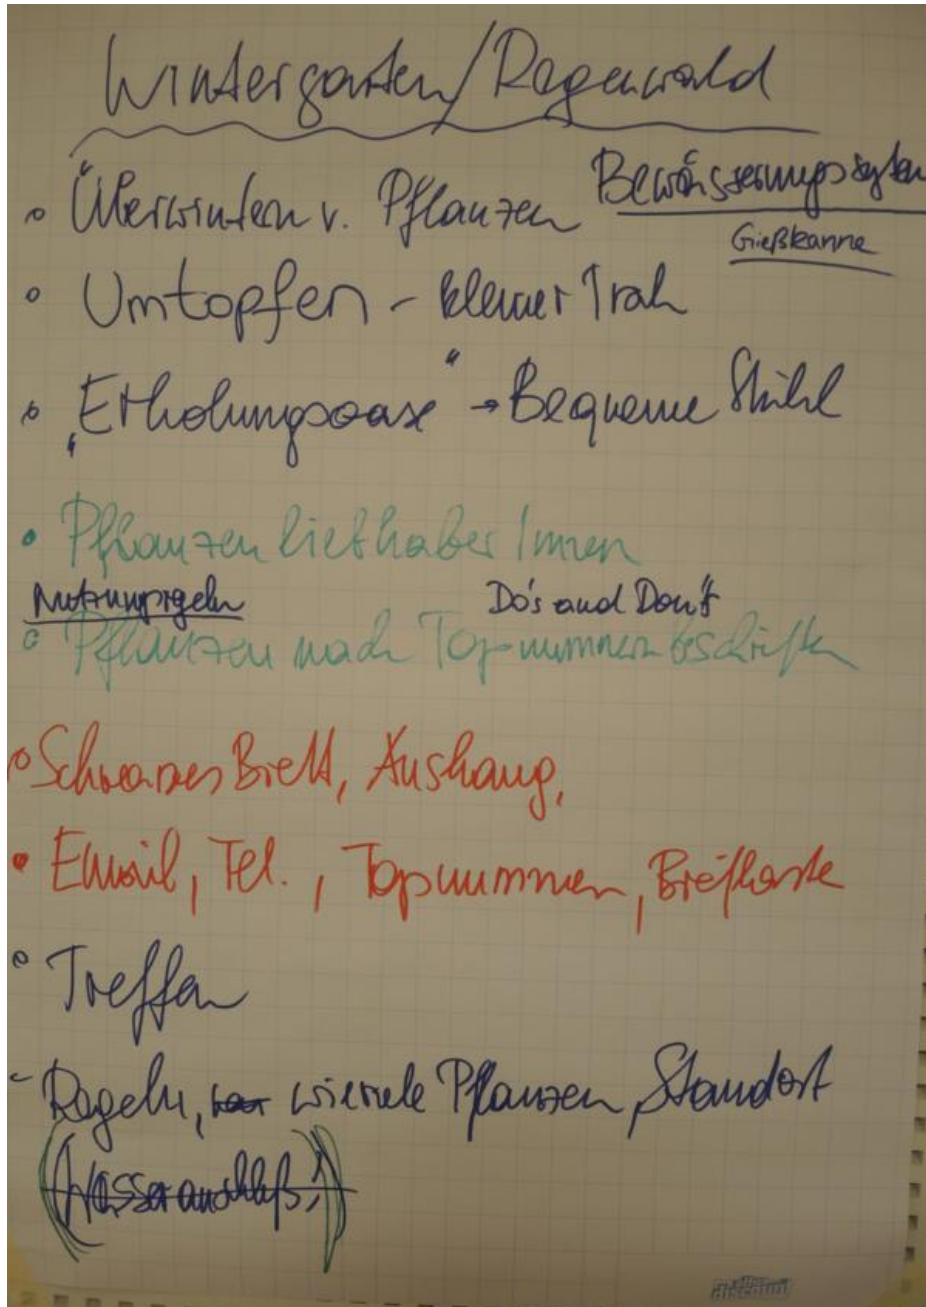 Wintergarten/Regenwald
• Überwintern v. Pflanzen Bewässerungssystem
Gießkanne
• Umtopfen - kleiner
• „Erholungsoase“ → Bequeme Stühl
• PflanzenliebhaberInnen
Nutzungsregeln Do's and Don't
• Pflanzen nach Topnummern beschriften
• Schwarzes Brett, Aushang,
• Email, Tel., Topnummer, Briefkaste
• Treffen
- Regeln, wieviele Pflanzen, Standort
(Wasseranschluß,)
discount